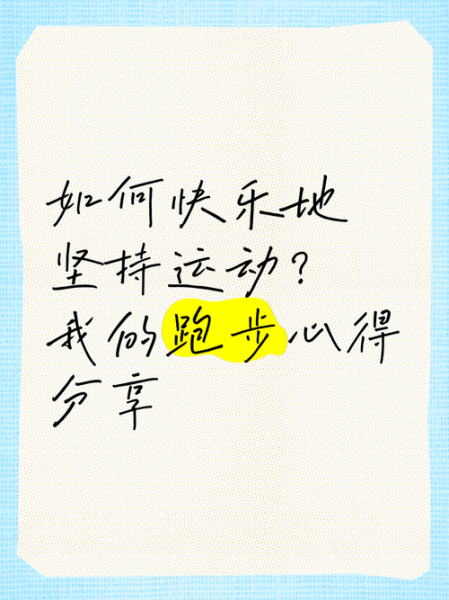 如何快乐地
坚持运动?
我的跑步心得
分享